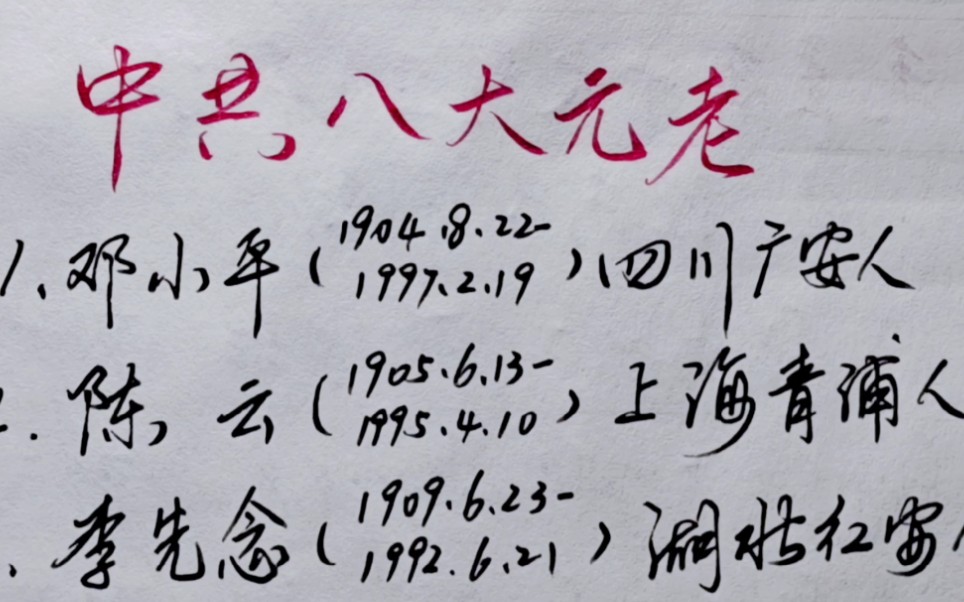 中共八大元老
1.邓小平(1904.8.22-1997.2.19)四川广安人
2.陈云(1905.6.13-1995.4.10)上海青浦人
李先念(1909.6.23-1992.6.21)湖北红安